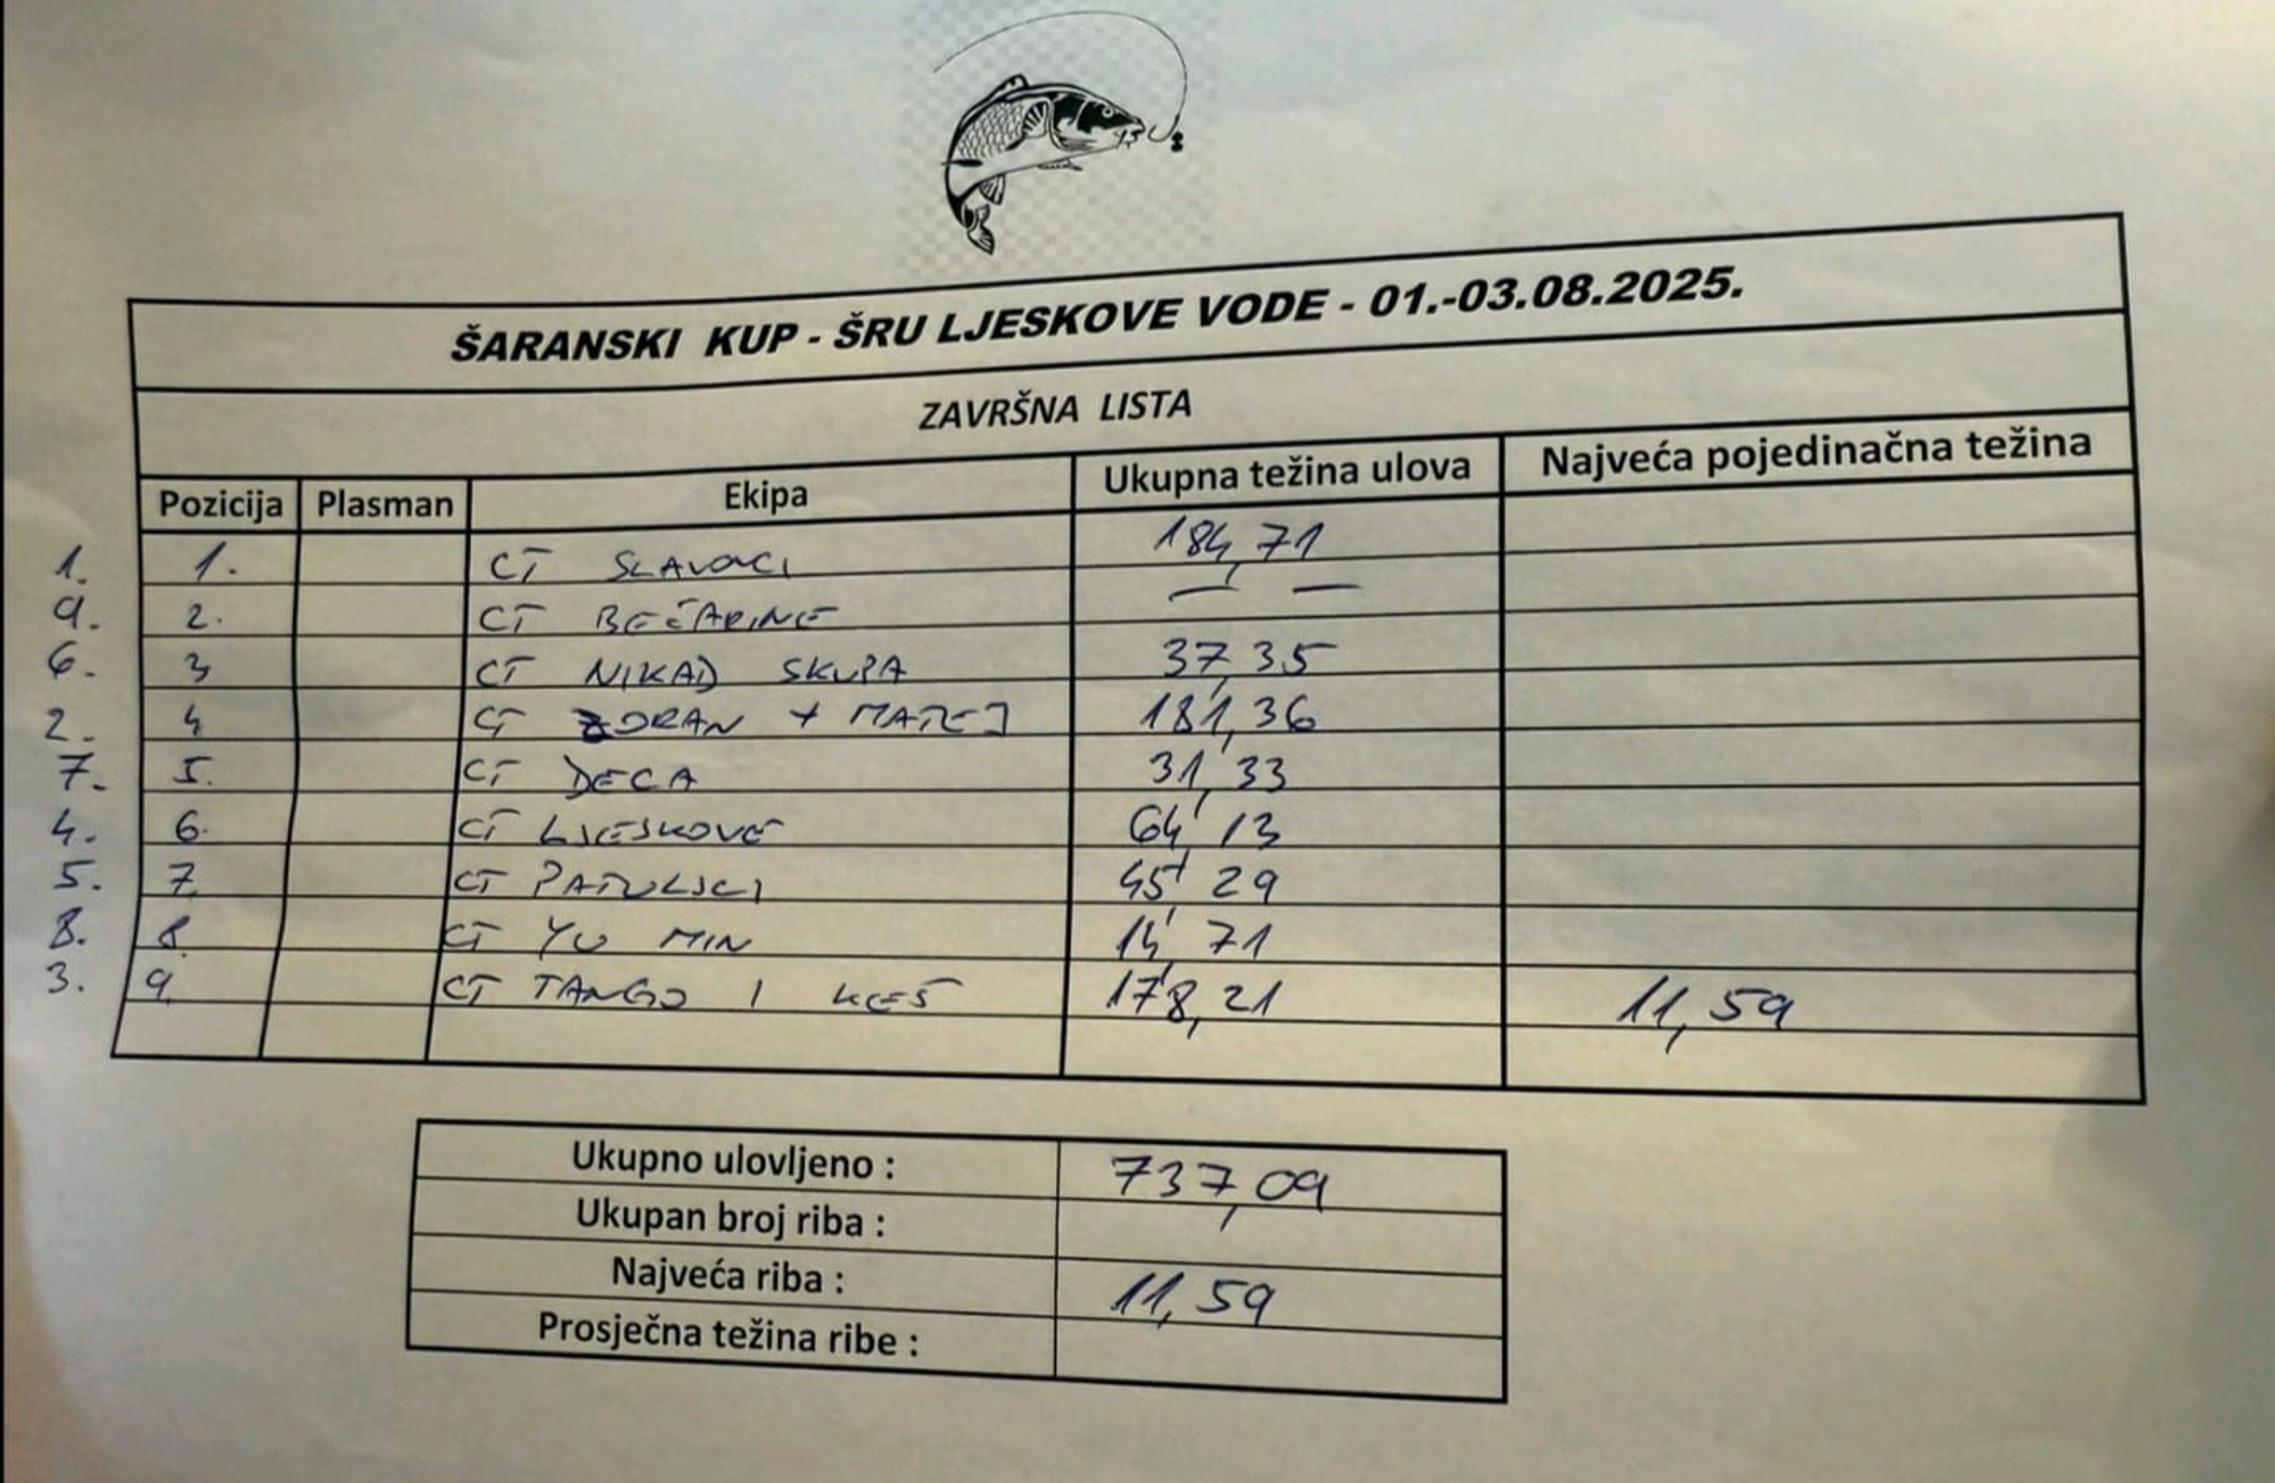 ŠARANSKI KUP - ŠRU LJESKOVE VODE - 01.-03.08.2025.
ZAVRŠNA LISTA
Pozicija Plasman Ekipa Ukupna težina ulova Najveća pojedinačna težina
1. 1. CT SLAVONCI 184,71
9. 2. CT BEĆARINE — —
6. 3 CT NIKAD SKUPA 37,35
2. 4 CT ZORAN + MATEJ 181,36
7. 5. CT DECA 31,33
4. 6. CT LJESKOVE 64,13
5. 7. CT PATULJCI 45,29
8. 8. CT YU MIN 14,71
3. 9. CT TANGO I KEŠ 178,21 11,59
Ukupno ulovljeno : 737,09
Ukupan broj riba :
Najveća riba : 11,59
Prosječna težina ribe :